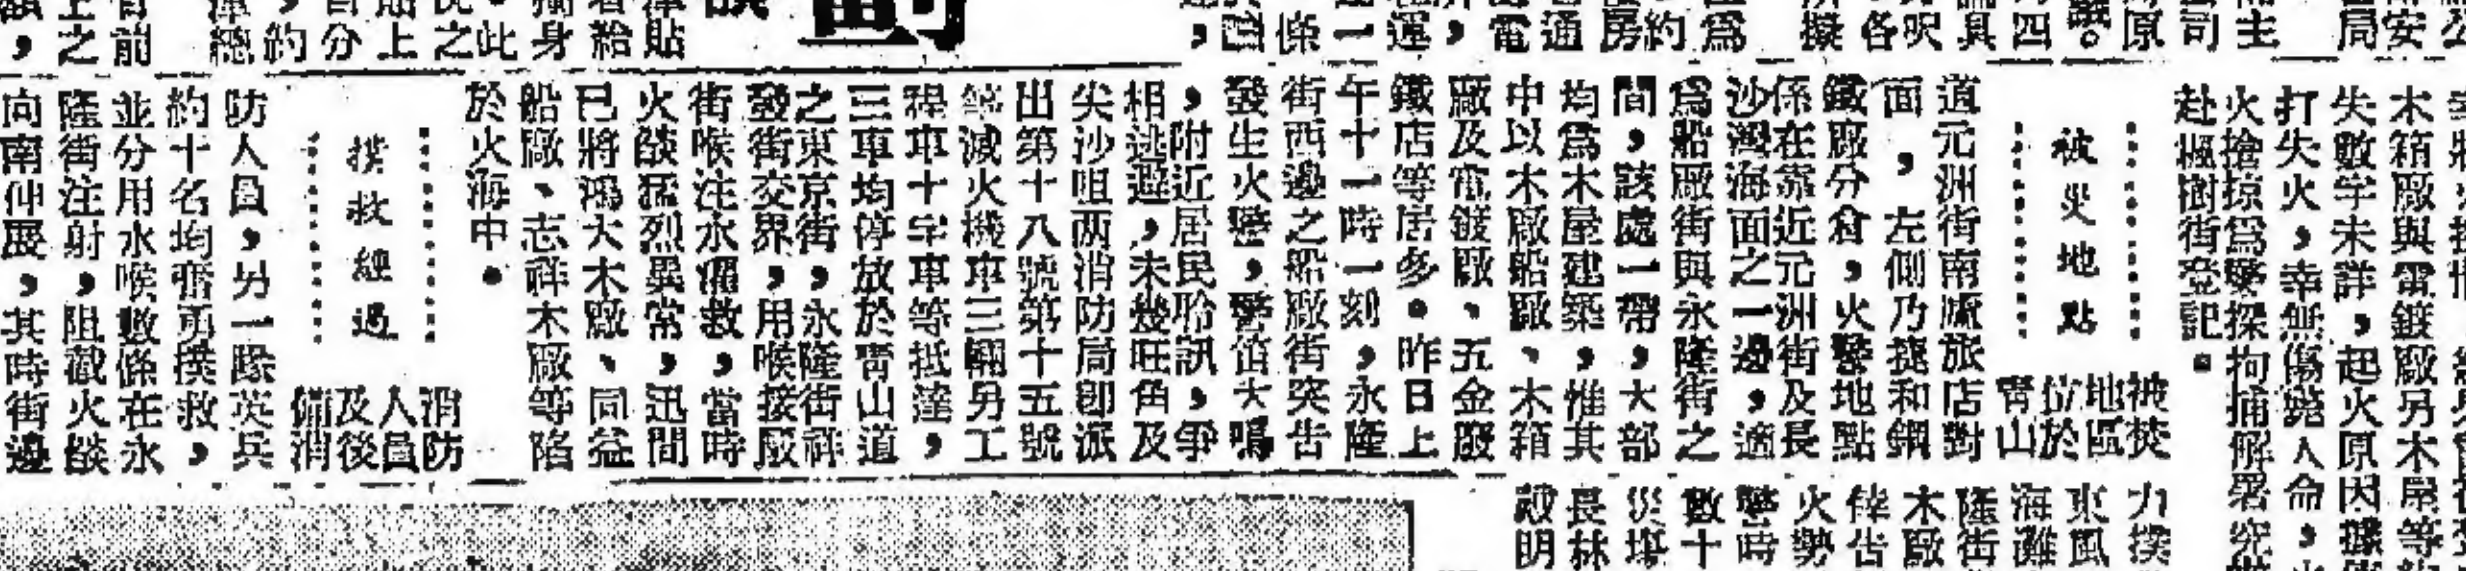 公
安
局
主
司
原
四
具
呎
各
擬
爲
約
房
通
電
運
一
條
津貼
者給
身
此
之
貼上
分
約
總
前
之
木箱廠與電鍍廠另木屋等
失數字未詳，起火原因據
打失火，幸無傷斃人命，
火搶掠爲警探拘捕解署究
赴楓樹街登記。
被災地點
被焚
地區
位於
靑山
道元洲街南旅店對
面，左側乃捷和鋼
鐵廠分倉，火警地點
係在靠近元洲街及長
沙灣海面之一邊，適
爲船廠街與永隆街之
間，該處一帶，大部
均爲木屋建築，惟其
中以木廠船廠、木箱
廠及電鍍廠、五金廢
鐵店等居多。昨日上
午十一時一刻，永隆
街西邊之船廠街突告
發生火警，警笛大鳴
，附近居民聆訊，爭
相逃避，未幾旺角及
尖沙咀兩消防局卽派
出第十八號第十五號
等滅火機車三輛另工
程車十字車等抵達，
三車均停放於靑山道
之東京街，永隆街祥
發街交界，用喉接駁
街喉注水灌救，當時
火燄猛烈異常，迅間
已將鴻大木廠、同益
船廠、志祥木廠等陷
於火海中。
撲救經過
消防
人員
及後
備消
防人員，另一隊英兵
約十名均奮勇撲救，
並分用水喉數條在永
隆街注射，阻截火燄
向南伸展，其時街邊
力撲
東風
海灘
隆街
木廠
倖告
火勢
警時
數十
災塲
長林
明